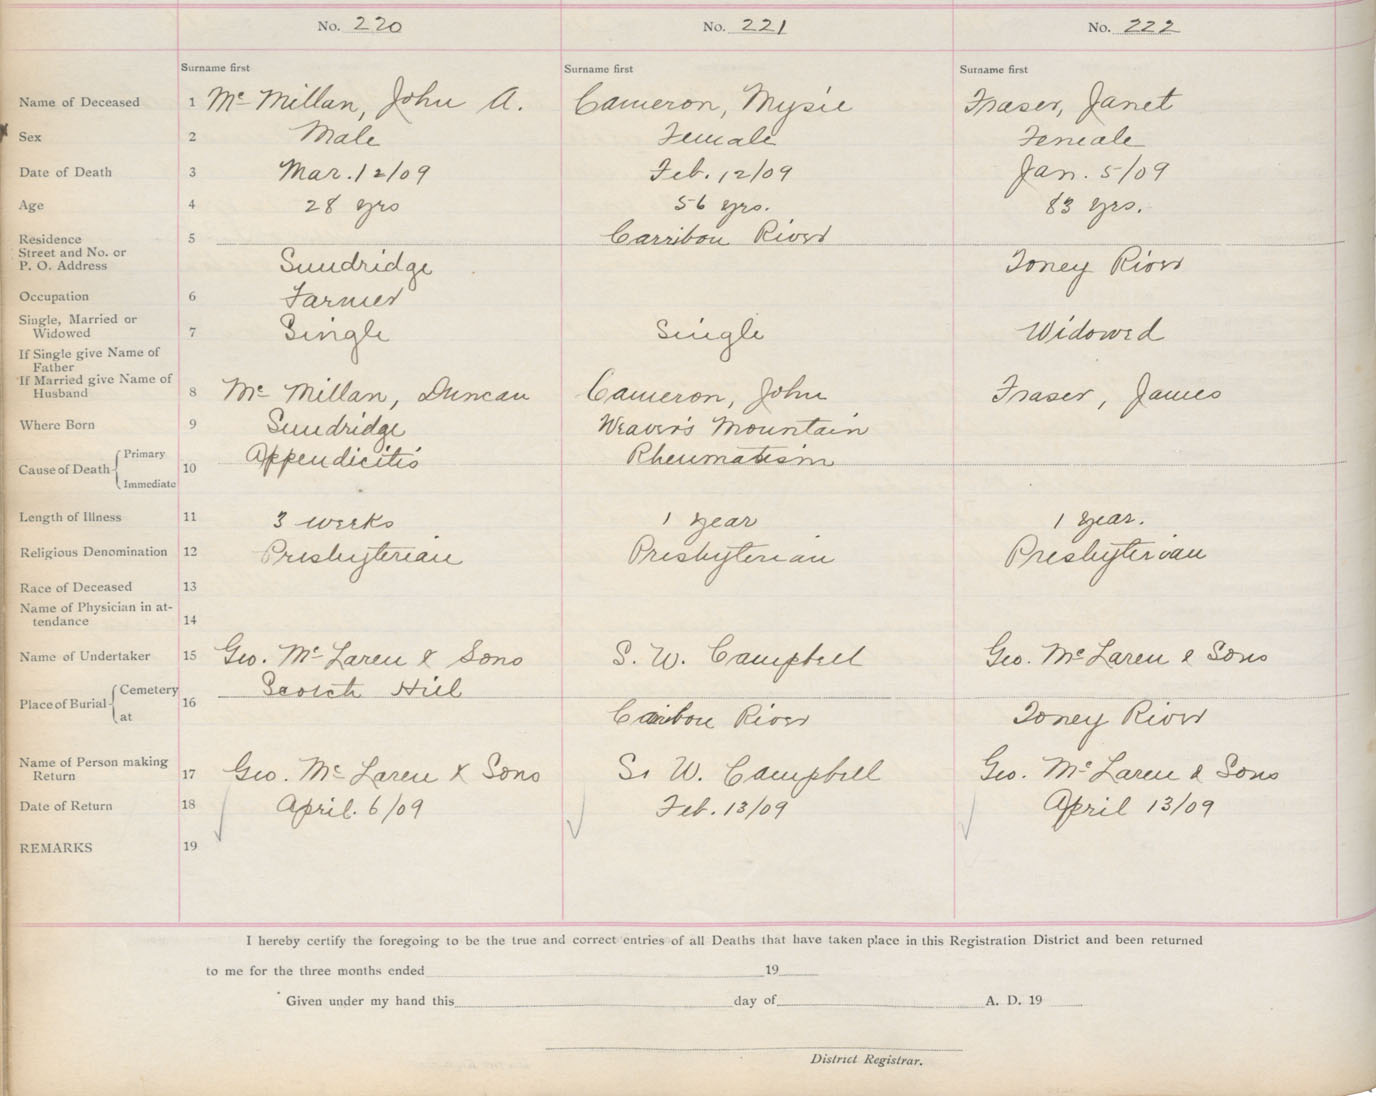 No. 220 No. 221 No. 222
Surname first Surname first Surname first
Name of Deceased 1 Mc Millan, John A. Cameron, Mysie Fraser, Janet
Sex 2 Male Female Female
Date of Death 3 Mar. 12/09 Feb. 12/09 Jan. 5/09
Age 4 28 yrs 56 yrs. 83 yrs.
Residence 5 Carribou River
Street and No. or
P. O. Address Sundridge Toney River
Occupation 6 Farmer
Single, Married or
Widowed 7 Single Single Widowed
If Single give Name of
Father
If Married give Name of
Husband 8 Mc Millan, Duncan Cameron, John Fraser, James
Where Born 9 Sundridge Weaver's Mountain
Cause of Death 10 Primary Appendicitis Rheumatism
Immediate
Length of Illness 11 3 weeks 1 year 1 year.
Religious Denomination 12 Presbyterian Presbyterian Presbyterian
Race of Deceased 13
Name of Physician in at-
tendance 14
Name of Undertaker 15 Geo. Mc Laren & Sons S. W. Campbell Geo. Mc Laren & Sons
Place of Burial 16 Cemetery Scotch Hill
at Caribou River Toney River
Name of Person making
Return 17 Geo. Mc Laren & Sons S. W. Campbell Geo. Mc Laren & Sons
Date of Return 18 April. 6/09 Feb. 13/09 April 13/09
REMARKS 19
I hereby certify the foregoing to be the true and correct entries of all Deaths that have taken place in this Registration District and been returned
to me for the three months ended 19
Given under my hand this day of A. D. 19
District Registrar.